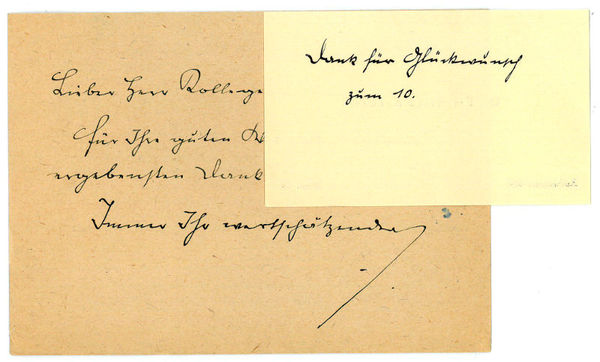 Dank für Glückwunsch
zum 10.
Lieber Herr Kollege
für Ihre guten
ergebensten Dank
Immer Ihr wertschätzender